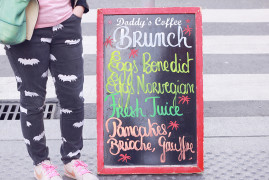 Daddy's Coffee
Brunch
Eggs Benedict
Eggs Norvegian
Fresh Juice
Pancakes,
Brioche, Gauffre